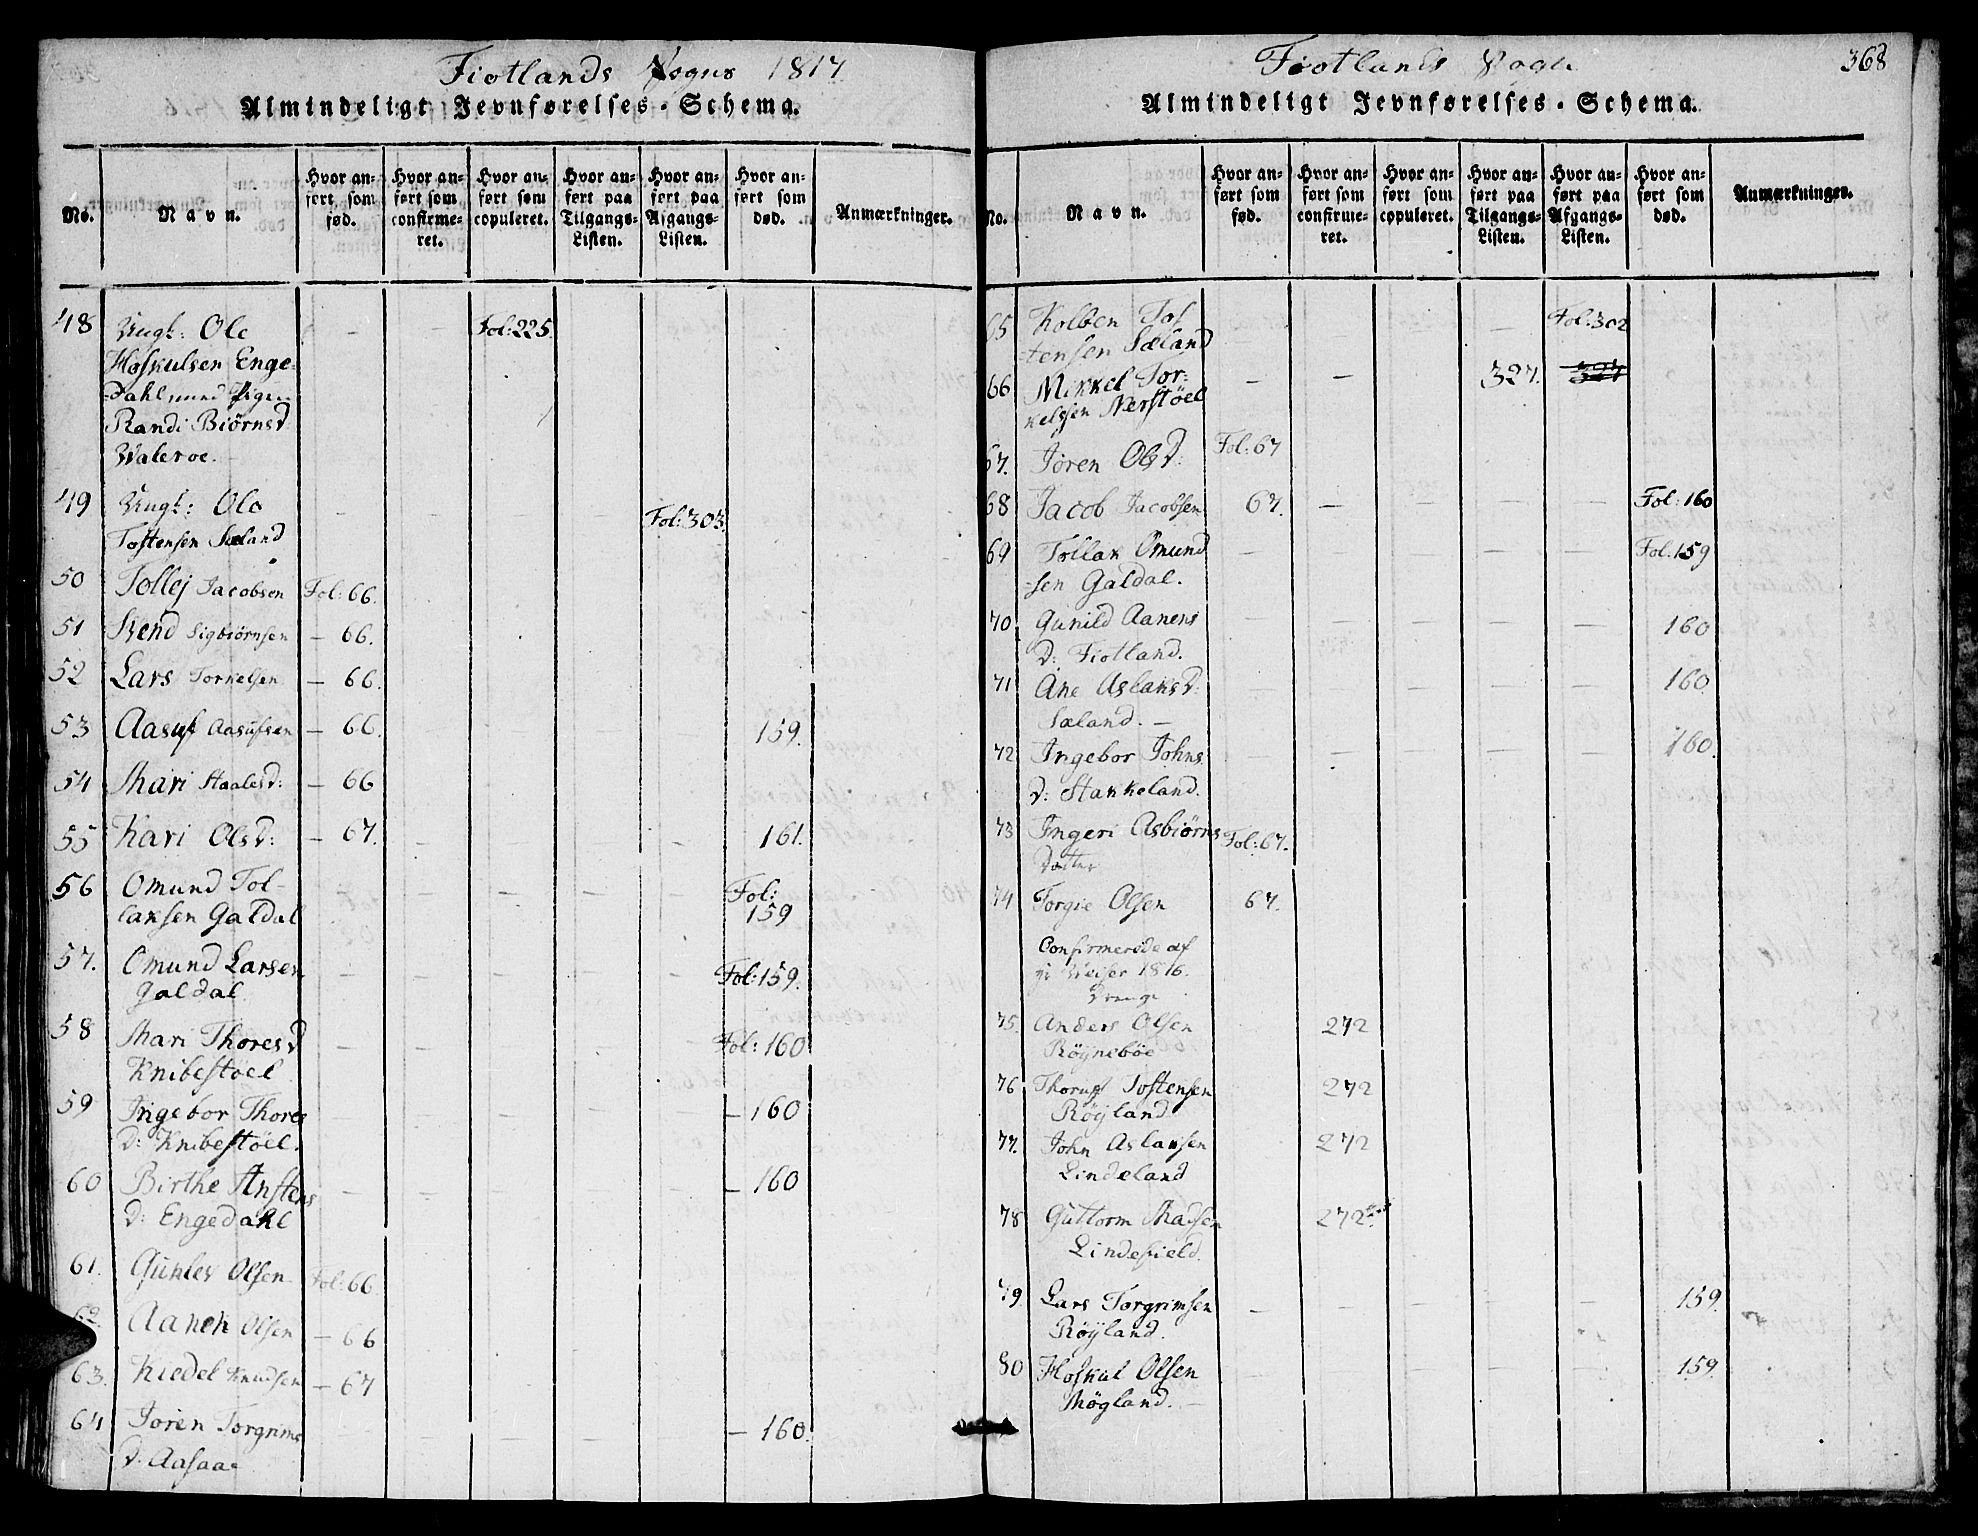 Fiotlands Sogns 1817
Almindeligt Jevnførelses-Schema.
No.
Navn.
Hvor an-
ført som
fød.
Hvor an-
ført som
confirme-
ret.
Hvor an-
ført som
copuleret.
Hvor an-
ført paa
Tilgangs-
Listen.
Hvor an-
ført paa
Afgangs-
Listen.
Hvor an-
ført som
død.
Anmærkninger.
48 Ungk: Ole Fol: 225.
Hoskulsen Enge-
Dahl, und Pigen
Randi Biørnsd
Waleroe.
49 Ungk: Ole Fol: 303.
Tostensen Sæland
50 Tollej Jacobsen Fol: 66.
51 Svend Sigbiørnsen — 66.
52 Lars Torkelsen — 66.
53 Aasuf Aasufsen — 66. 159.
54 Mari Staalesd: — 66
55 Kari Olsd: — 67. 161.
56 Omund Tol- Fol:
laksen Galdal 159
57. Omund Larsen Fol: 159.
Galdal
58 Mari Thoresd Fol: 160
Knibestøel
59 Ingebor Thores — 160
d: Knibestøel.
60 Birthe Anstens — 160
d: Engedahl
61. Gunlev Olsen Fol: 66.
62. Aanen Olsen — 66
63. Kiedel Knudsen — 67
64 Joren Torgrims — 160.
d. Aasaae
Fiotlands Sogn 368
Almindeligt Jevnførelses-Schema.
No.
Navn.
Hvor an-
ført som
fød.
Hvor an-
ført som
confirme-
ret.
Hvor an-
ført som
copuleret.
Hvor an-
ført paa
Tilgangs-
Listen.
Hvor an-
ført paa
Afgangs-
Listen.
Hvor an-
ført som
død.
Anmærkninger.
65 Kolben Tos Fol: 302
-tensen Sæland
66 Mikkel Tor: — — 327. 327
kelssen Nerstøel
67. Joren Olsd: Fol: 67
68 Jacob Jacobsen 67. — Fol: 160
69 Tollak Omund Fol. 159
-sen Galdal.
70 Gunild Aanens 160
d: Fiotland.
71 Ane Aslaksd: 160.
Sæland. —
72 Ingebor Johns 160.
d: Stakkeland.
73 Ingeri Asbiørns Fol: 67.
Datter
74 Torgie Olsen 67.
Confirmerede af
1816.
Drenge
75. Anders Olsen 272
Røynebøe
76 Thoruf Tostensen 272
Røyland
77. John Aslaksen 272
Lindeland
78 Guttorm Madsen 272
Lindefield.
79 Lars Torgrimsen 159.
Røyland.
80 Hoskul Olsen 159.
Møgland.